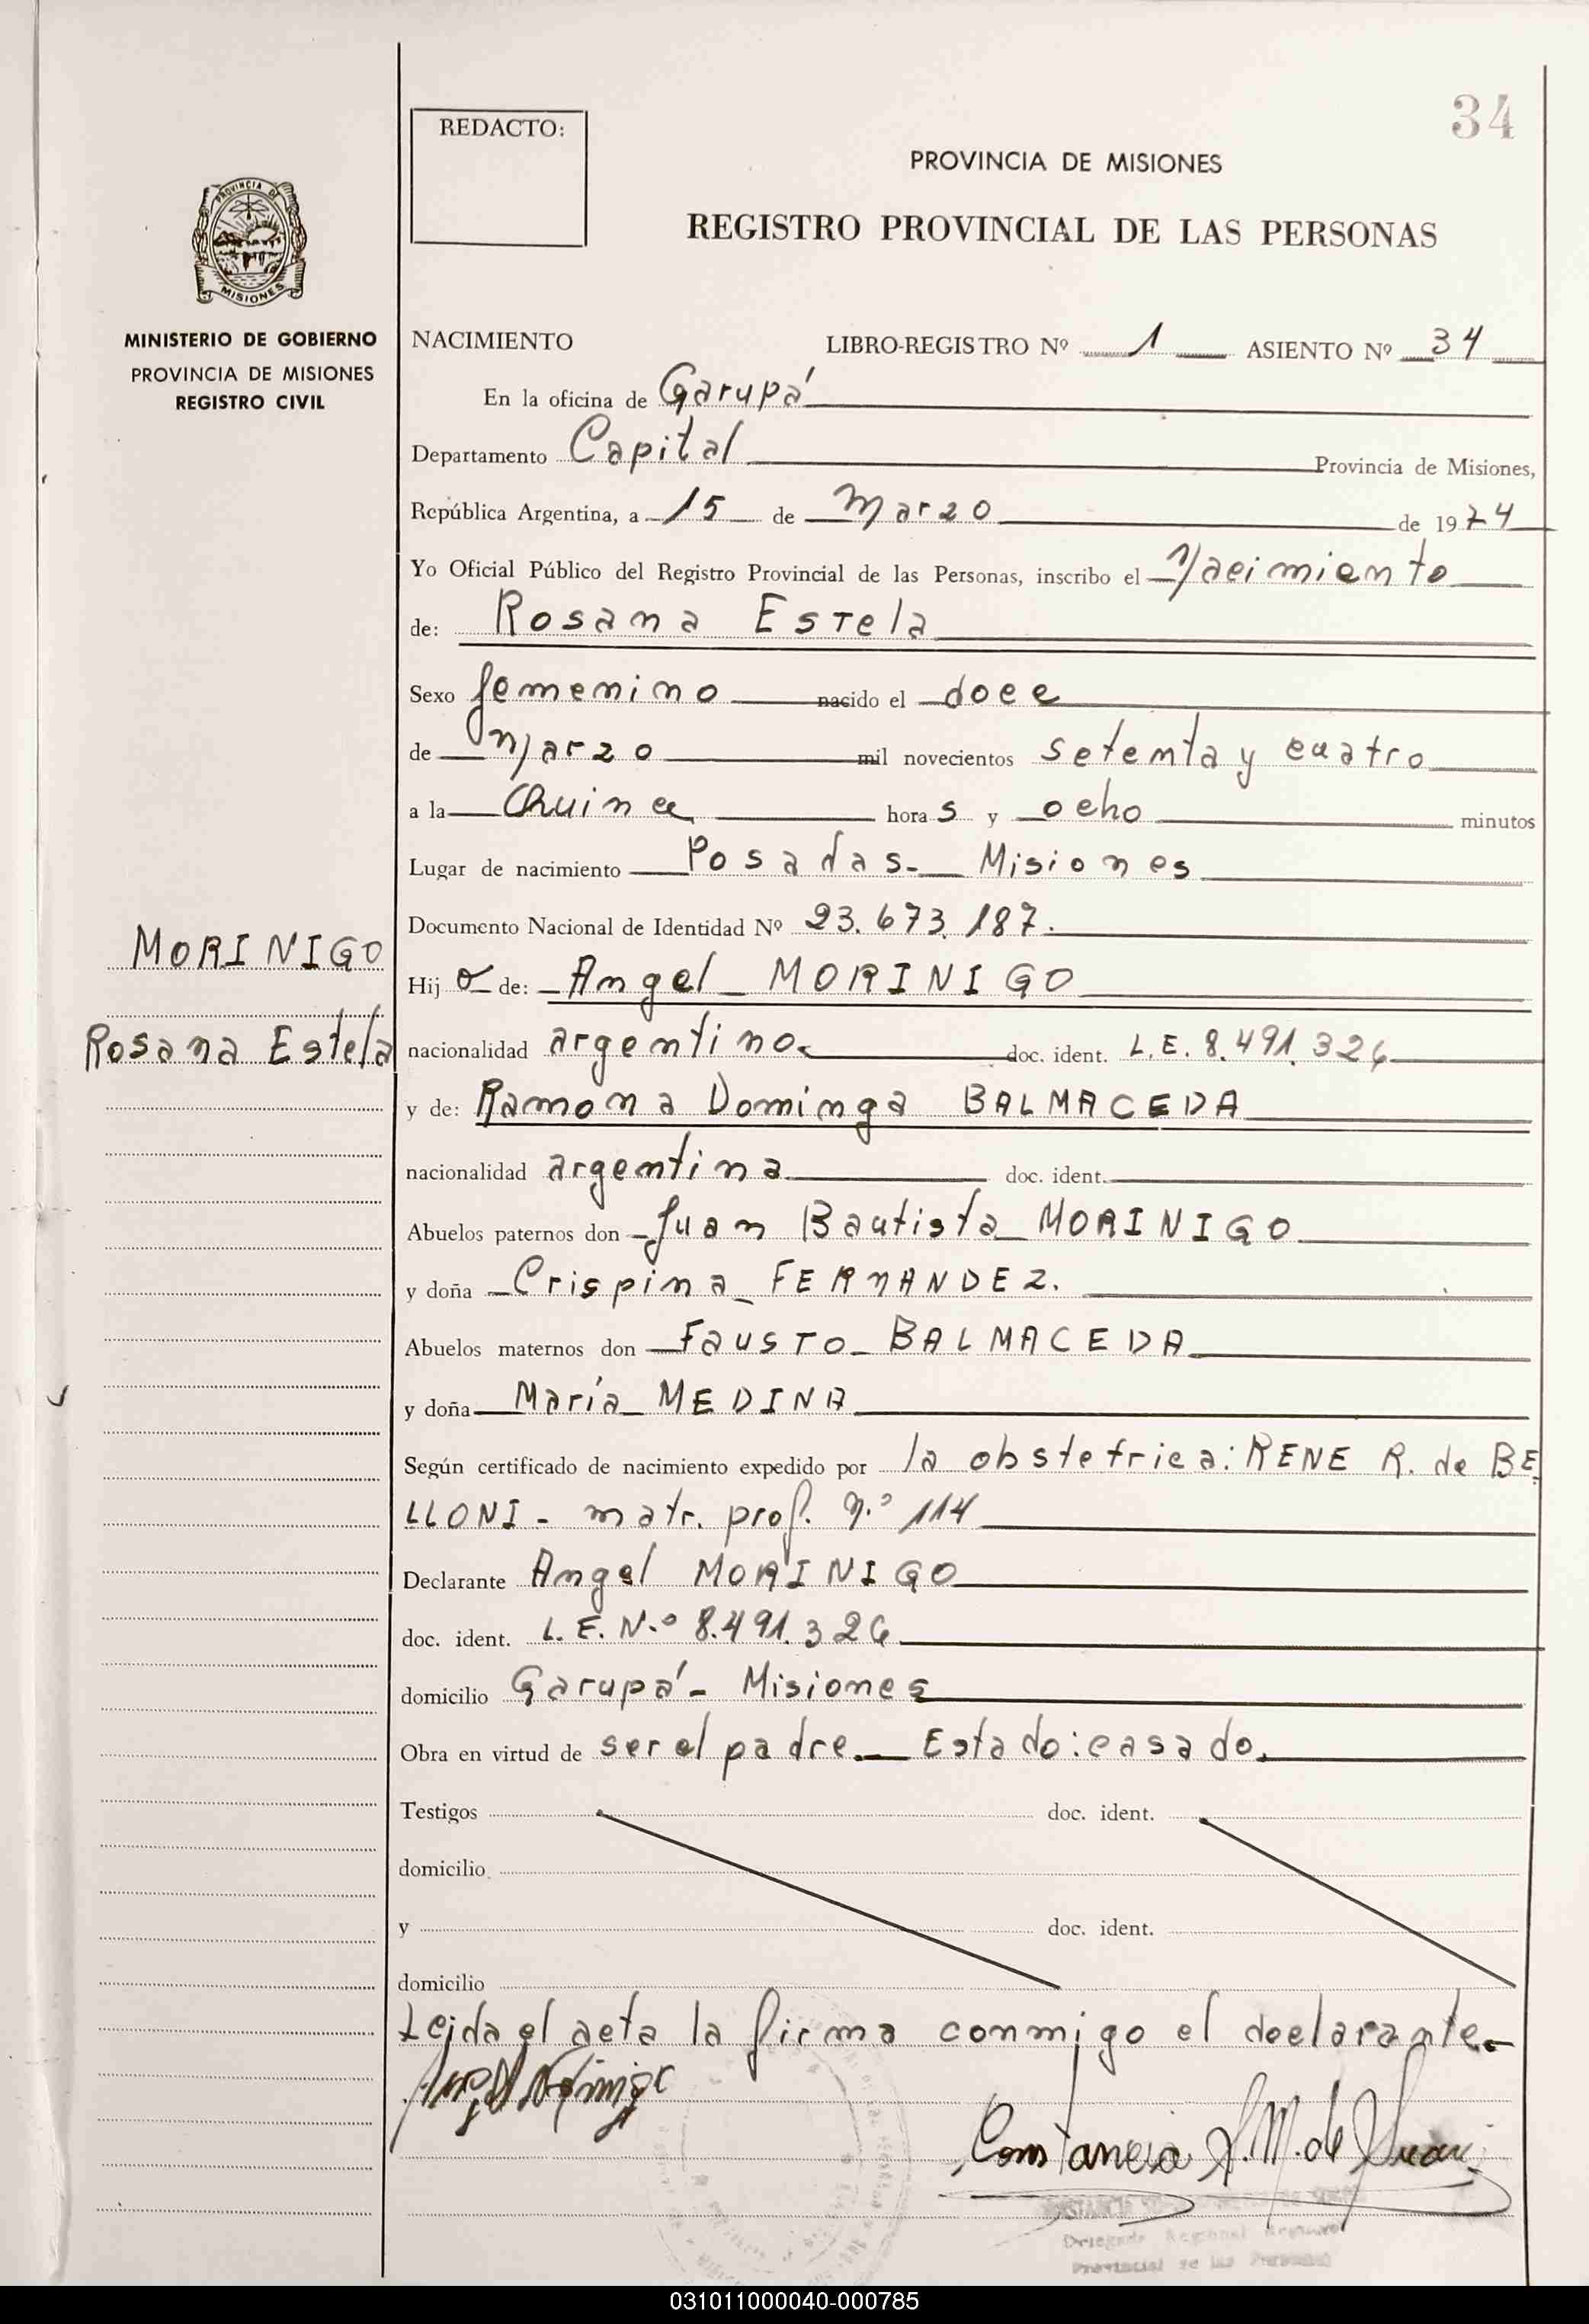 34
REDACTO:
PROVINCIA DE MISIONES
REGISTRO PROVINCIAL DE LAS PERSONAS
PROVINCIA DE
MISIONES
MINISTERIO DE GOBIERNO
PROVINCIA DE MISIONES
REGISTRO CIVIL
NACIMIENTO LIBRO-REGISTRO Nº 1 ASIENTO Nº 34
En la oficina de Garupá
Departamento Capital Provincia de Misiones,
República Argentina, a 15 de Marzo de 1974
Yo Oficial Público del Registro Provincial de las Personas, inscribo el Nacimiento
de: Rosana Estela
Sexo femenino nacido el doce
de Marzo mil novecientos setenta y cuatro
a la Quince horas y ocho minutos
Lugar de nacimiento Posadas- Misiones
Documento Nacional de Identidad Nº 23.673.187.
MORINIGO
Rosana Estela
Hija de: Angel MORINIGO
nacionalidad argentino doc. ident. L.E. 8.491.326
y de: Ramona Dominga BALMACEDA
nacionalidad argentina doc. ident.
Abuelos paternos don Juan Bautista MORINIGO
y doña Crispina FERNANDEZ.
Abuelos maternos don Fausto BALMACEDA
y doña María MEDINA
Según certificado de nacimiento expedido por la obstetrica: RENE R. de BE
LLONI - matr. prof. N.º 114
Declarante Angel MORINIGO
doc. ident. L.E. N.º 8.491.326
domicilio Garupá - Misiones
Obra en virtud de ser el padre. Estado: casado.
Testigos doc. ident.
domicilio
y doc. ident.
domicilio
Leida el acta la firma conmigo el declarante.
Constancia de
Delegada Regional
Provincial de las Personas
031011000040-000785